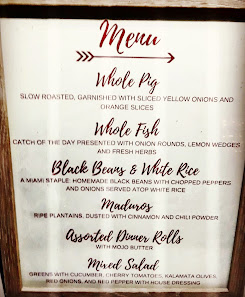 Menu
Whole Pig
SLOW ROASTED, GARNISHED WITH SLICED YELLOW ONIONS AND
ORANGE SLICES
Whole Fish
CATCH OF THE DAY PRESENTED WITH ONION ROUNDS, LEMON WEDGES
AND FRESH HERBS
Black Beans & White Rice
A MIAMI STAPLE: HOMEMADE BLACK BEANS WITH CHOPPED PEPPERS
AND ONIONS SERVED ATOP WHITE RICE
Maduros
RIPE PLANTAINS, DUSTED WITH CINNAMON AND CHILI POWDER
Assorted Dinner Rolls
WITH MOJO BUTTER
Mixed Salad
GREENS WITH CUCUMBER, CHERRY TOMATOES, KALAMATA OLIVES,
RED ONIONS, AND RED PEPPER WITH HOUSE DRESSING